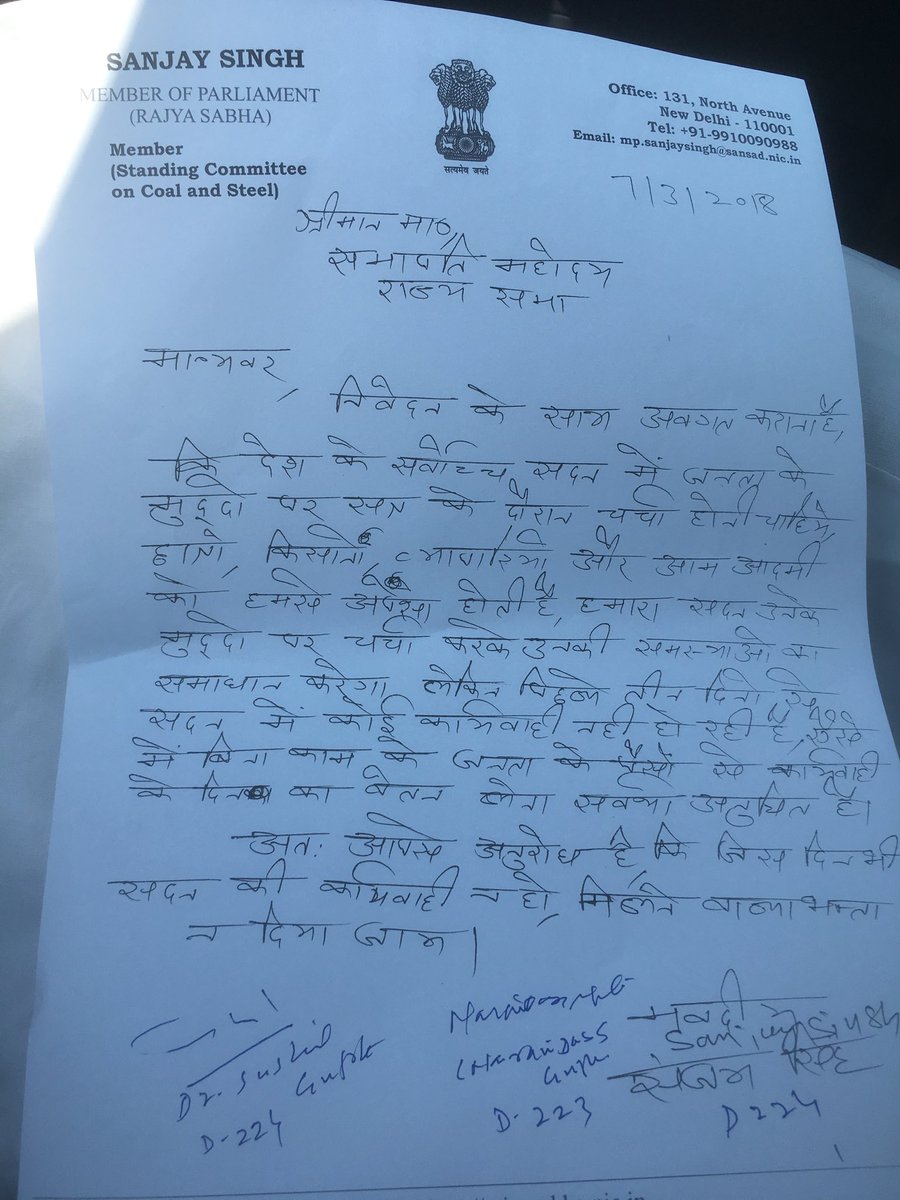 SANJAY SINGH
MEMBER OF PARLIAMENT
(RAJYA SABHA)
Member
(Standing Committee
on Coal and Steel)
सत्यमेव जयते
Office: 131, North Avenue
New Delhi - 110001
Tel: +91-9910090988
Email: mp.sanjaysingh@sansad.nic.in
7/3/2018
श्रीमान मा०,
सभापति महोदय
राज्य सभा
मान्यवर,
निवेदन के साथ अवगत कराना है,
कि देश के सर्वोच्च सदन में जनता के
मुद्दो पर सत्र के दौरान चर्चा होनी चाहिये,
छात्रो, किसानो, व्यापारियो और आम आदमी
को हमसे अपेक्षा होती है, हमारा सदन उनके
मुद्दो पर चर्चा करके उनकी समस्याओ का
समाधान करेगा लेकिन पिछले तीन दिनो से
सदन में कोई कार्यवाही नही हो रही है, ऐसे
में बिना काम के जनता के पैसो से कार्यवाही
के दिन का वेतन लेना सर्वथा अनुचित है।
अत: आपसे अनुरोध है, कि जिस दिन भी
सदन की कार्यवाही न हो, मिलने वाला भत्ता
न दिया जाय।
Dr. Sushil
Gupta
D-224
(Narain Dass
Gupta
D-223
भवदीय
Sanjay Singh
संजय सिंह
D 224